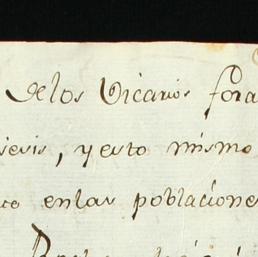 delos Vicarios fora
sesis, y esto mismo
co enlas poblacione